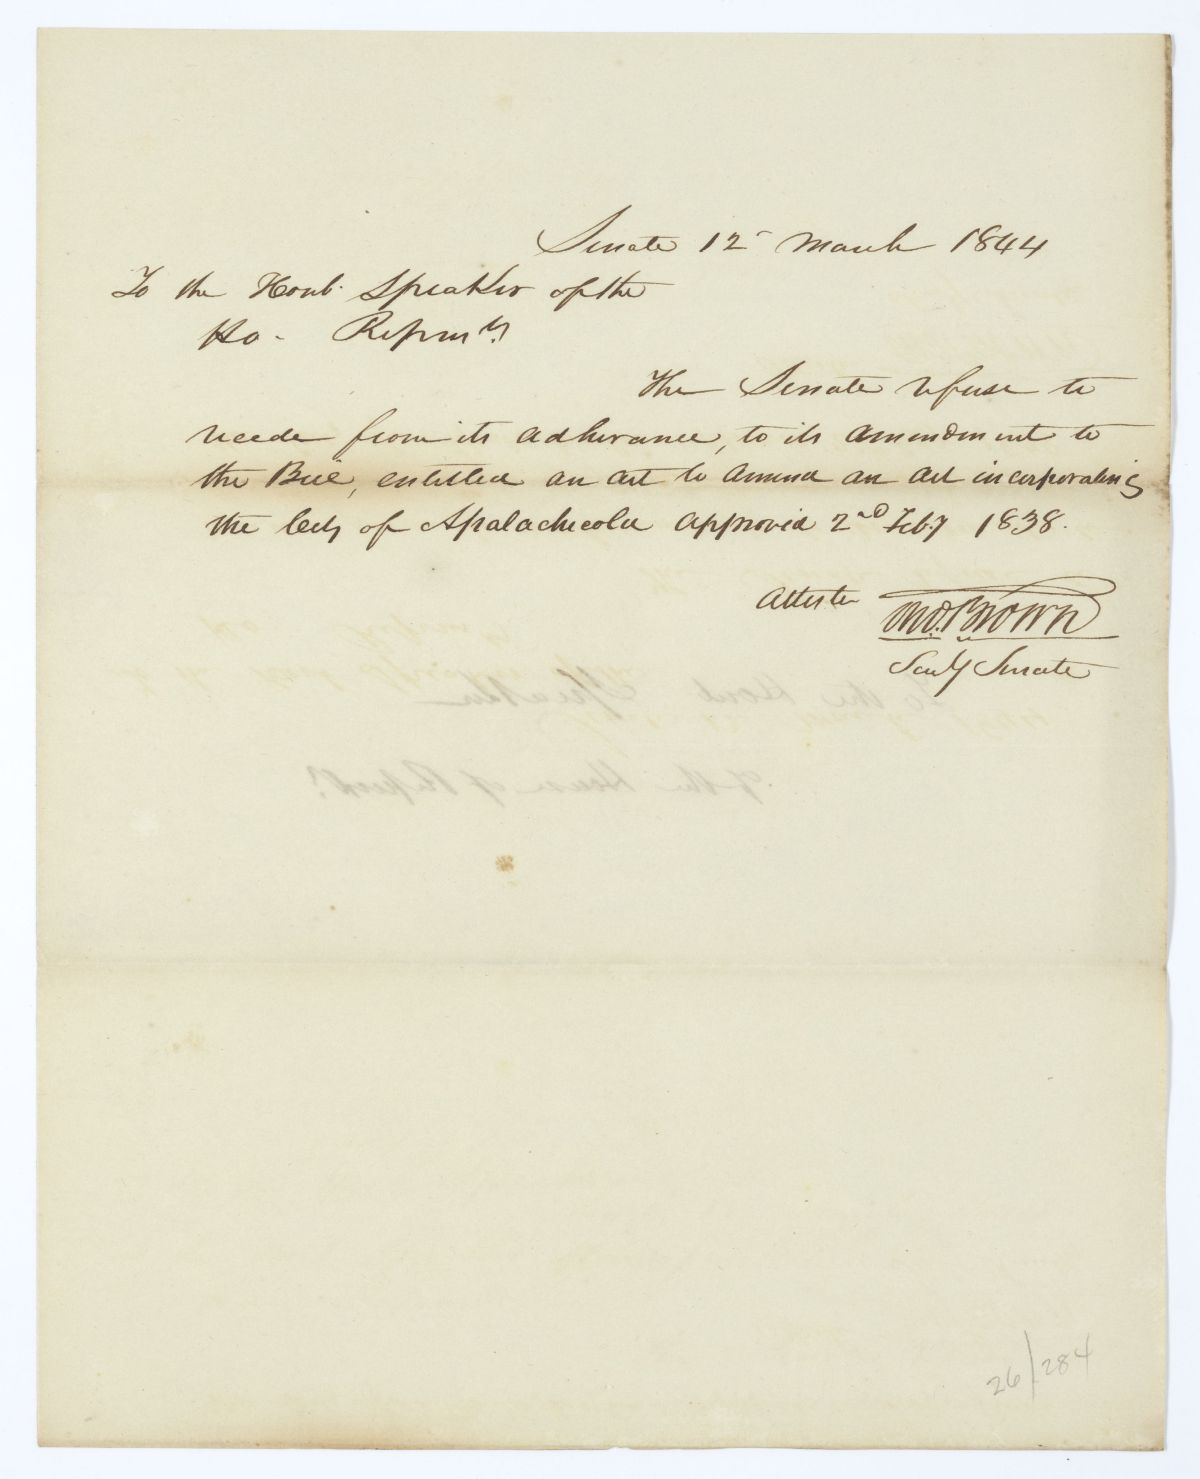 Senate 12 March 1844
To the Honbl. Speaker of the
Ho- Reprsts.
The Senate refuse to
recede from its adherance, to its amendment to
the Bill, entitled an act to amend an act incorporating
the City of Apalachicola approved 2nd Feby 1838.
Attester Tho. Brown
Secty Senate
To the Honb Speaker
of the House of Represts.
26/284